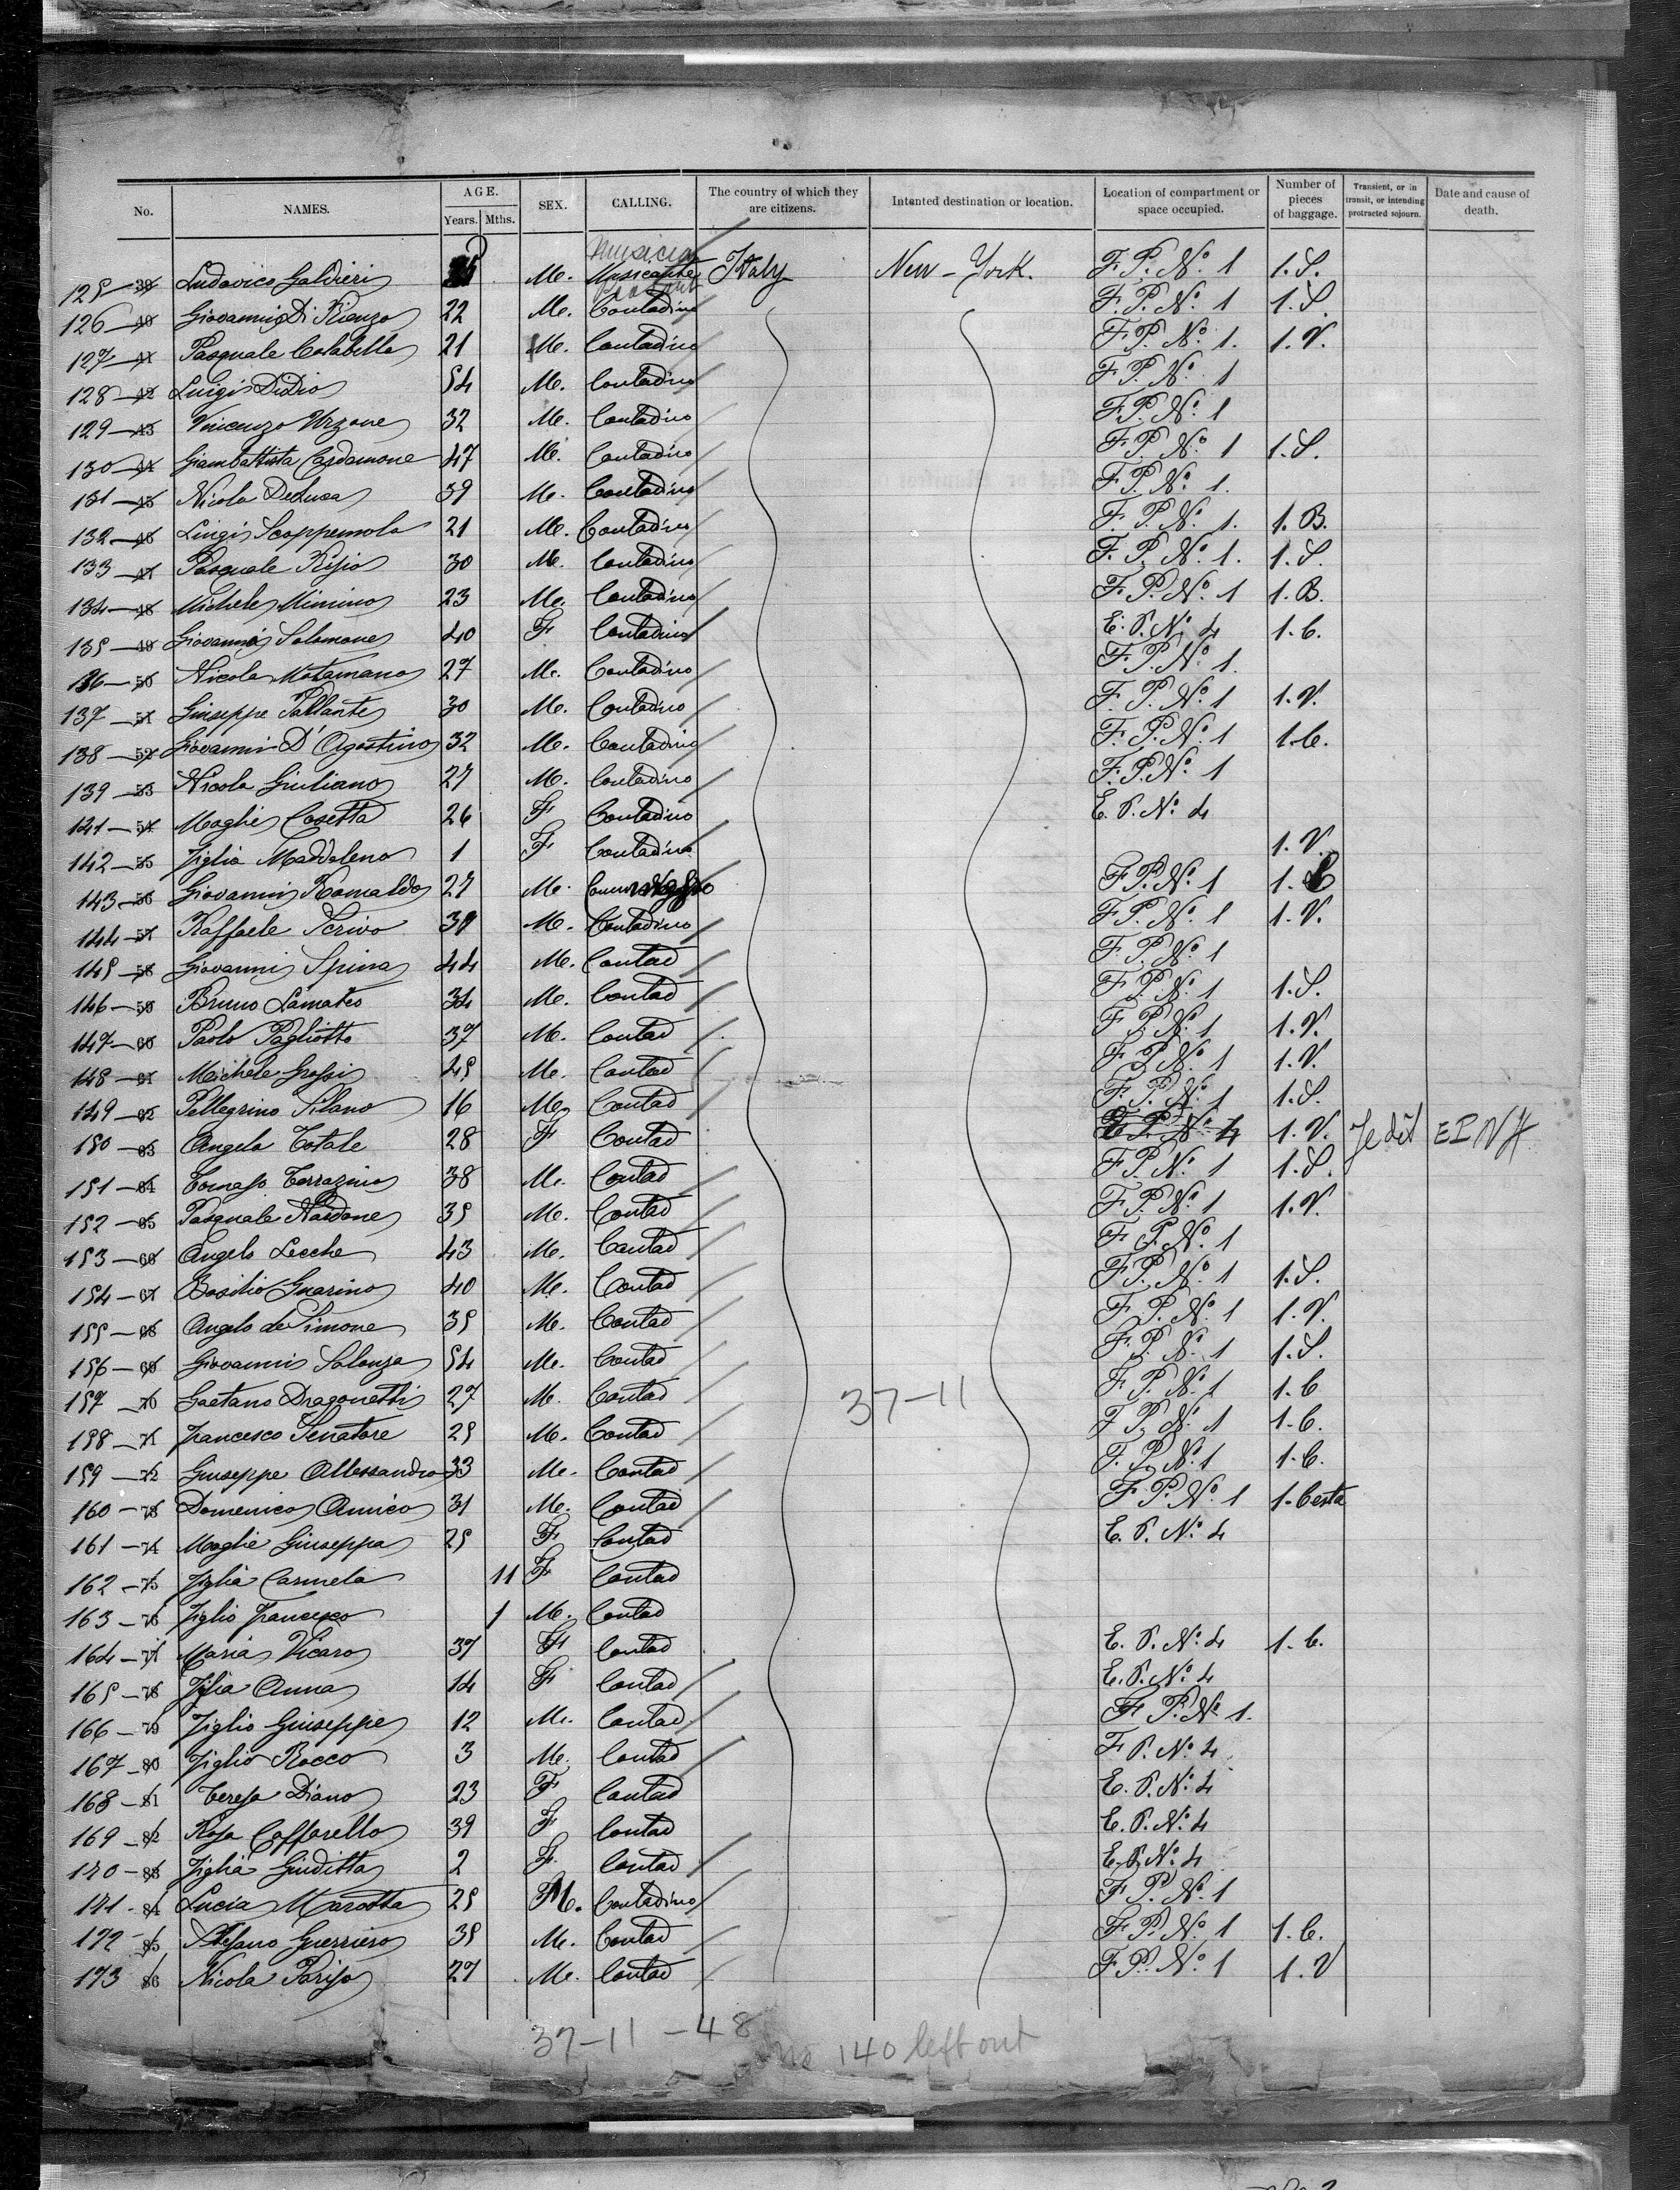 No. NAMES. AGE. Years. Mths. SEX. CALLING. The country of which they are citizens. Intanted destination or location. Location of compartment or space occupied. Number of pieces of baggage. Transient, or in transit, or intending protracted sojourn. Date and cause of death.
Musician
125 — 39 Ludovico Galdieri M. Musicante Italy New-York. F. P. No. 1 1. S.
126 — 40 Giovanni Di Rienzo 22 M. Contadino F. P. No. 1 1. S.
127 — 41 Pasquale Colabella 21 M. Contadino F. P. No. 1. 1. V.
128 — 42 Luigi DiDio 54 M. Contadino F. P. No. 1
129 — 43 Vincenzo Urzone 32 M. Contadino F. P. No. 1
130 — 44 Giambattista Cardamone 47 M. Contadino F. P. No. 1 1. S.
131 — 45 Nicola DeLuca 39 M. Contadino F. P. No. 1.
132 — 46 Luigi Scoppemola 21 M. Contadino F. P. No. 1. 1. B.
133 — 47 Pasquale Risio 30 M. Contadino F. P. No. 1. 1. S.
134 — 48 Michele Minino 23 M. Contadino F. P. No. 1 1. B.
135 — 49 Giovanna Salamone 40 F Contadino E. P. No. 4 1. C.
136 — 50 Nicola Matamano 27 M. Contadino F. P. No. 1.
137 — 51 Giuseppe Pallante 30 M. Contadino F. P. No. 1 1. V.
138 — 52 Giovanni D'Agostino 32 M. Contadino F. P. No. 1 1. C.
139 — 53 Nicola Giuliano 27 M. Contadino F. P. No. 1
141 — 54 Moglie Cosetta 26 F Contadino E. P. No. 4
142 — 55 Figlia Maddalena 1 F Contadino 1. V.
143 — 56 Giovanni Romaldo 27 M. F. P. No. 1 1.
144 — 57 Raffaele Scrivo 39 M. Contadino F. P. No. 1 1. V.
145 — 58 Giovanni Spina 44 M. Contad F. P. No. 1
146 — 59 Bruno Lamateo 34 M. Contad F. P. No. 1 1. S.
147 — 60 Paolo Pagliotto 37 M. Contad F. P. No. 1 1. V.
148 — 61 Michele Grossi 45 M. Contad F. P. No. 1 1. V.
149 — 62 Pellegrino Silano 16 M. Contad F. P. No. 1 1. S.
150 — 63 Angela Totale 28 F Contad E. P. No. 4 1. V.
151 — 64 Tomaso Terrazino 38 M. Contad F. P. No. 1 1. S.
152 — 65 Pasquale Nardone 35 M. Contad F. P. No. 1 1. V.
153 — 66 Angelo Lecche 43 M. Contad F. P. No. 1
154 — 67 Basilio Guarino 40 M. Contad F. P. No. 1 1. S.
155 — 68 Angelo de Simone 35 M. Contad F. P. No. 1 1. V.
156 — 69 Giovanni Salanza 54 M. Contad F. P. No. 1 1. S.
157 — 70 Gaetano Dragonetti 27 M. Contad 37-11 F. P. No. 1 1. C
158 — 71 Francesco Senatore 25 M. Contad F. P. No. 1 1. C.
159 — 72 Giuseppe Allessandro 33 M. Contad F. P. No. 1 1. C.
160 — 73 Domenico Amico 31 M. Contad F. P. No. 1 1. Cesta
161 — 74 Moglie Giuseppa 25 F Contad E. P. No. 4
162 — 75 Figlia Carmela 11 F Contad
163 — 76 Figlio Francesco 1 M. Contad
164 — 77 Maria Vicaro 37 F Contad E. P. No. 4 1. C.
165 — 78 Filia Anna 14 F Contad E. P. No. 4
166 — 79 Figlio Giuseppe 12 M. Contad F. P. No. 1.
167 — 80 Figlio Rocco 3 M. Contad F P. No. 4
168 — 81 Teresa Diano 23 F Contad E. P. No. 4
169 — 82 Rosa Caffarello 39 F Contad E. P. No. 4
170 — 83 Figlia Giuditta 2 F. Contad E. P. No. 4
171 - 84 Lucia Marotta 25 M. Contadino F. P. No. 1
172 — 85 Stefano Guerriero 38 M. Contad F. P. No. 1 1. C.
173 86 Nicola Pariso 27 M. Contad F. P. No. 1 1. V
37-11 - 48
no 140 left out